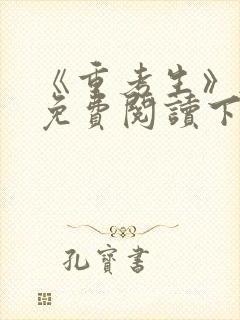 《重考生》
免費閱讀下
孔寶書